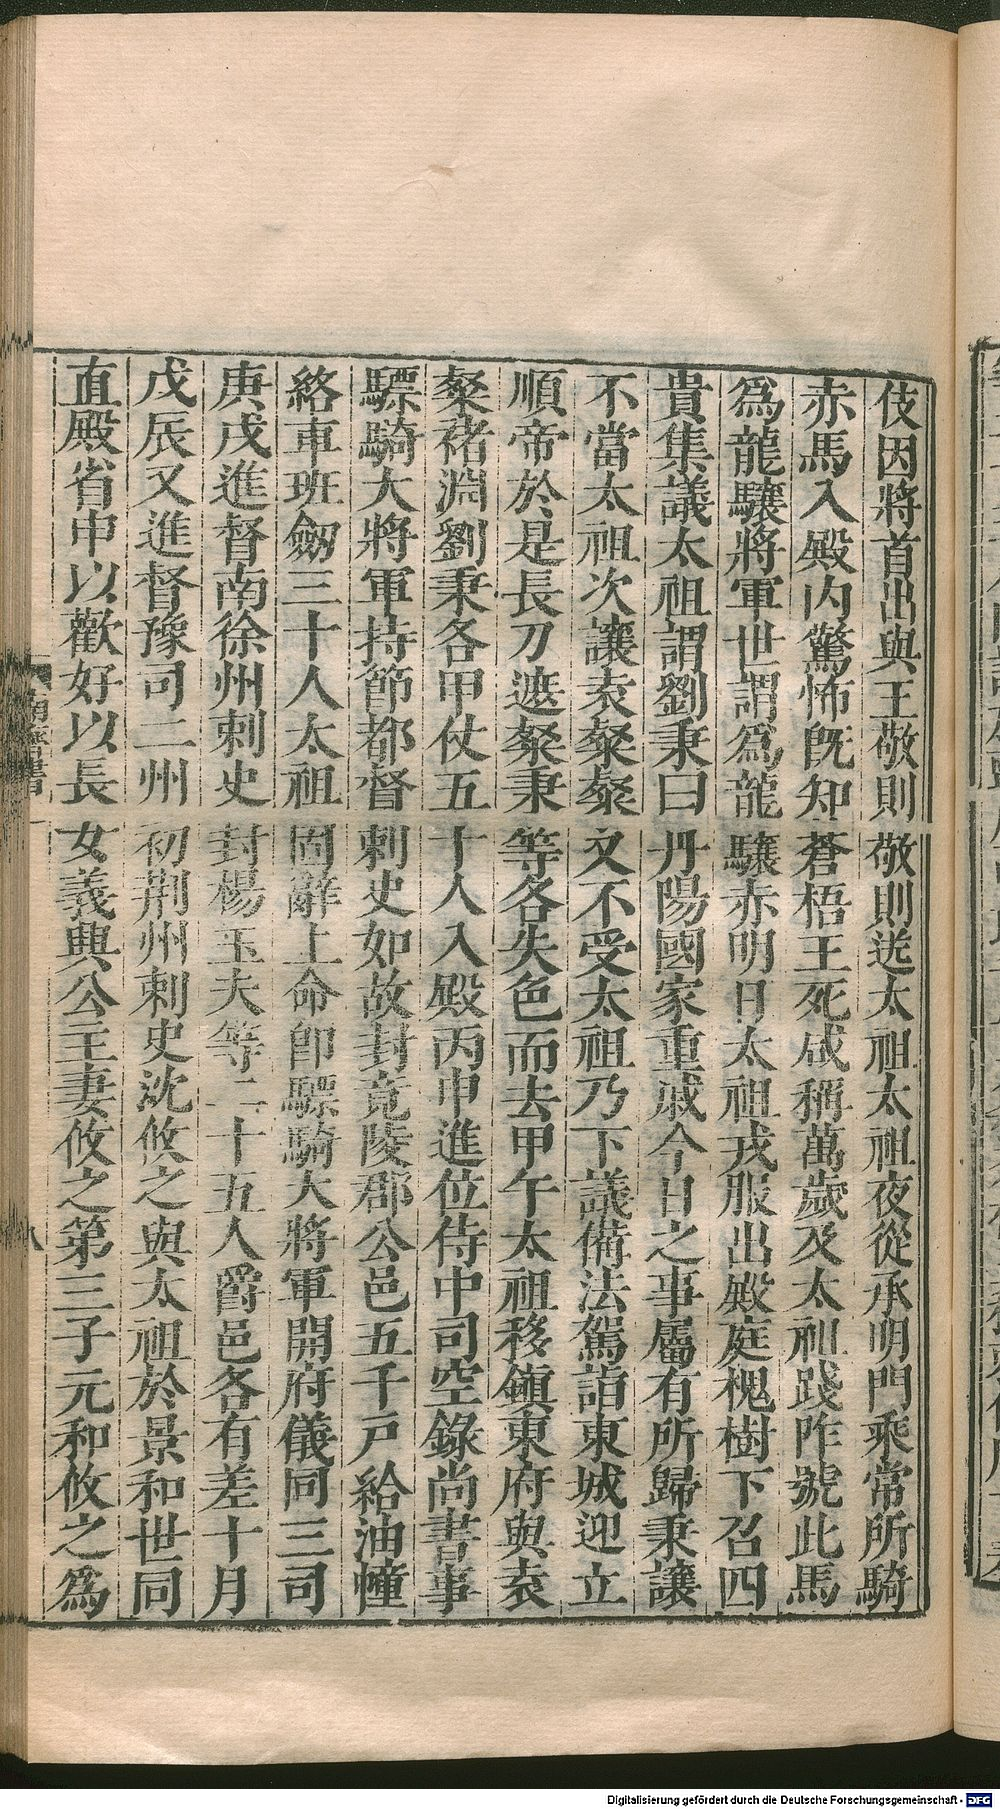 伎因將首出與王敬則敬則送太祖太祖夜從承明門乘常所騎
赤馬入殿內驚怖既知蒼梧王死咸稱萬歲及太祖踐阼號此馬
爲龍驤將軍世謂爲龍驤赤明日太祖戎服出殿庭槐樹下召四
貴集議太祖謂劉秉曰丹陽國家重戚今日之事屬有所歸秉讓
不當太祖次讓袁粲粲又不受太祖乃下議備法駕詣東城迎立
順帝於是長刀遮粲秉等各失色而去甲午太祖移鎮東府與袁
粲褚淵劉秉各甲仗五十人入殿丙申進位侍中司空錄尚書事
驃騎大將軍持節都督刺史如故封竟陵郡公邑五千戶給油幢
絡車班劒三十人太祖固辭上命即驃騎大將軍開府儀同三司
庚戌進督南徐州刺史封楊玉夫等二十五人爵邑各有差十月
戊辰又進督豫司二州初荊州刺史沈攸之與太祖於景和世同
直殿省申以歡好以長女義興公主妻攸之第三子元和攸之爲
八
Digitalisierung gefördert durch die Deutsche Forschungsgemeinschaft - DFG